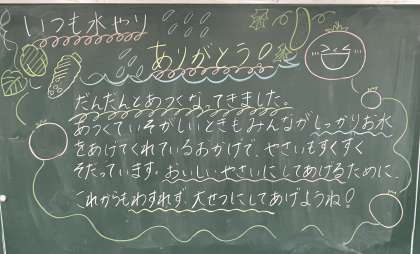 いつも水やり
ありがとう!
だんだんとあつくなってきました。
あつくていそがしいときもみんながしっかりお水
をあげてくれているおかげで、やさいもすくすく
そだっています。おいしいやさいにしてあげるために、
これからもわすれず、大せつにしてあげようね!